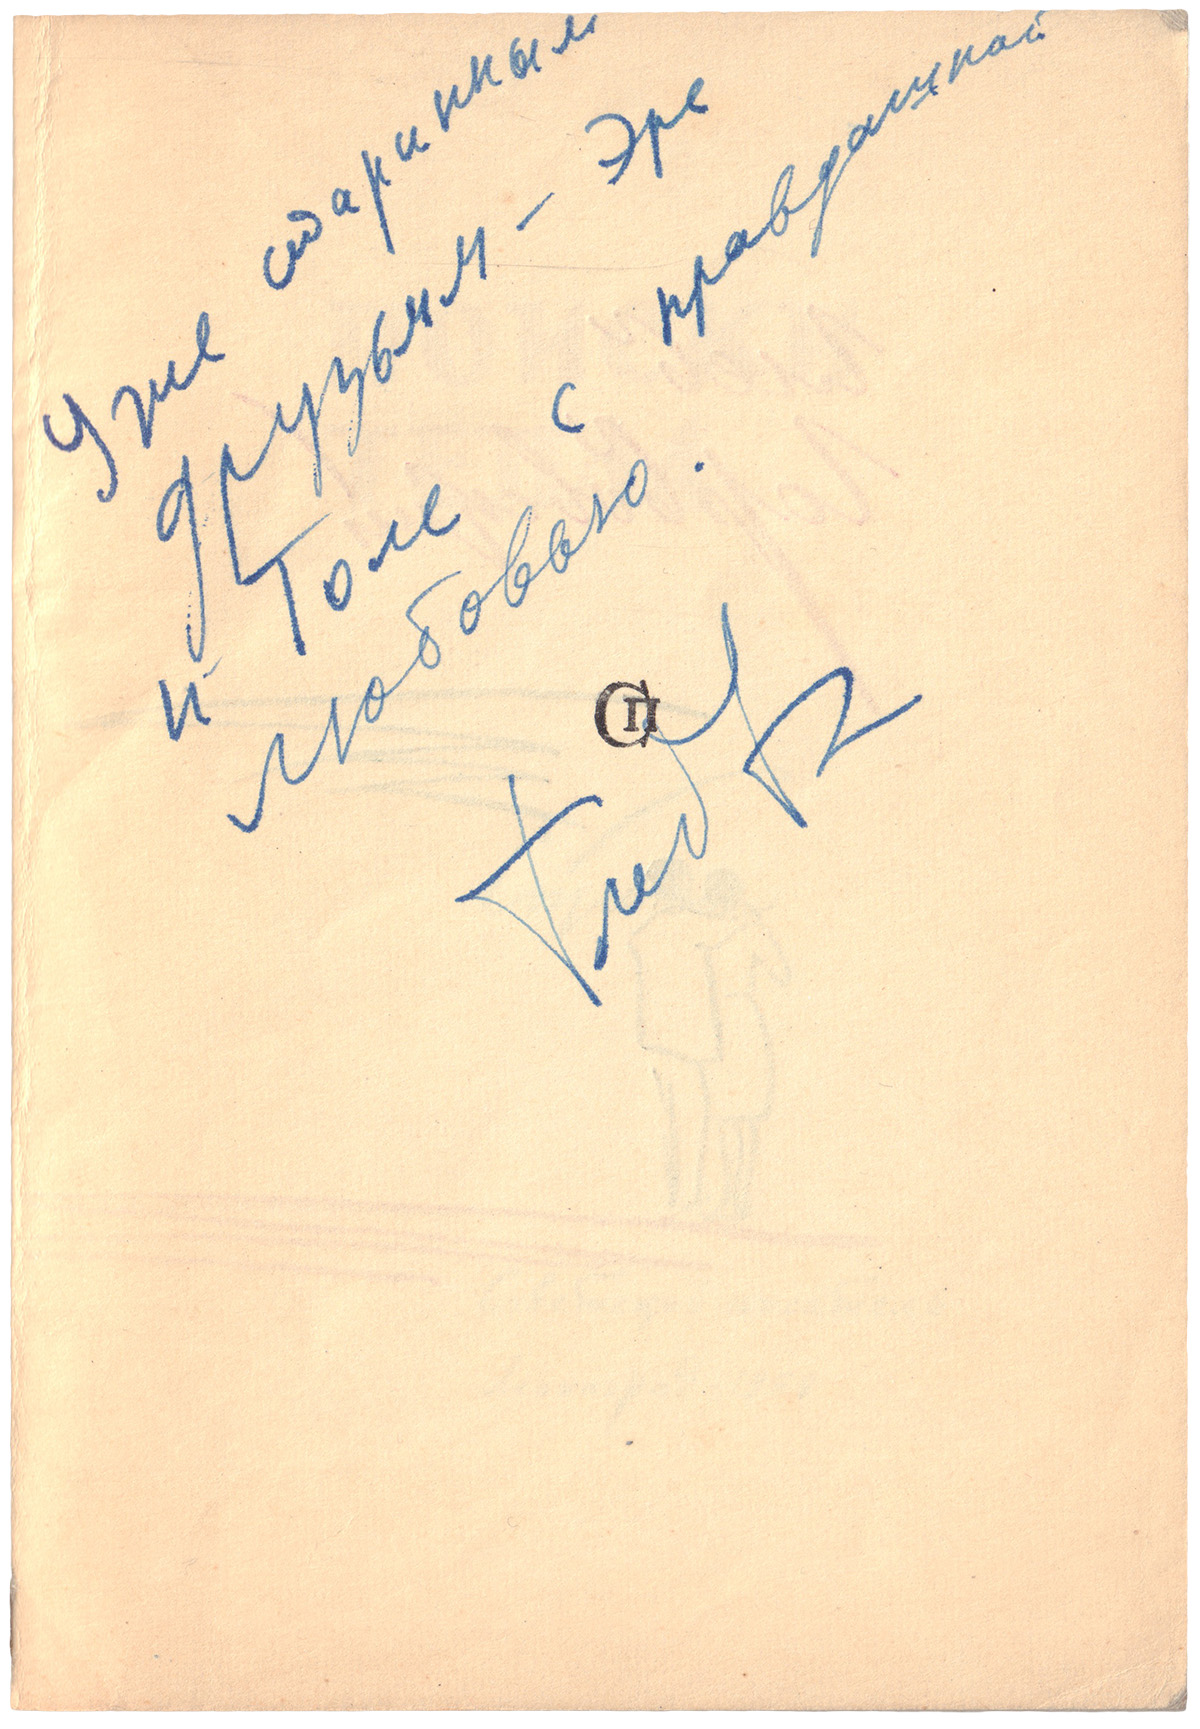 Уже старинным
друзьям - Эре
и Толе с правдашной
любовью.
СП
Глеб Г